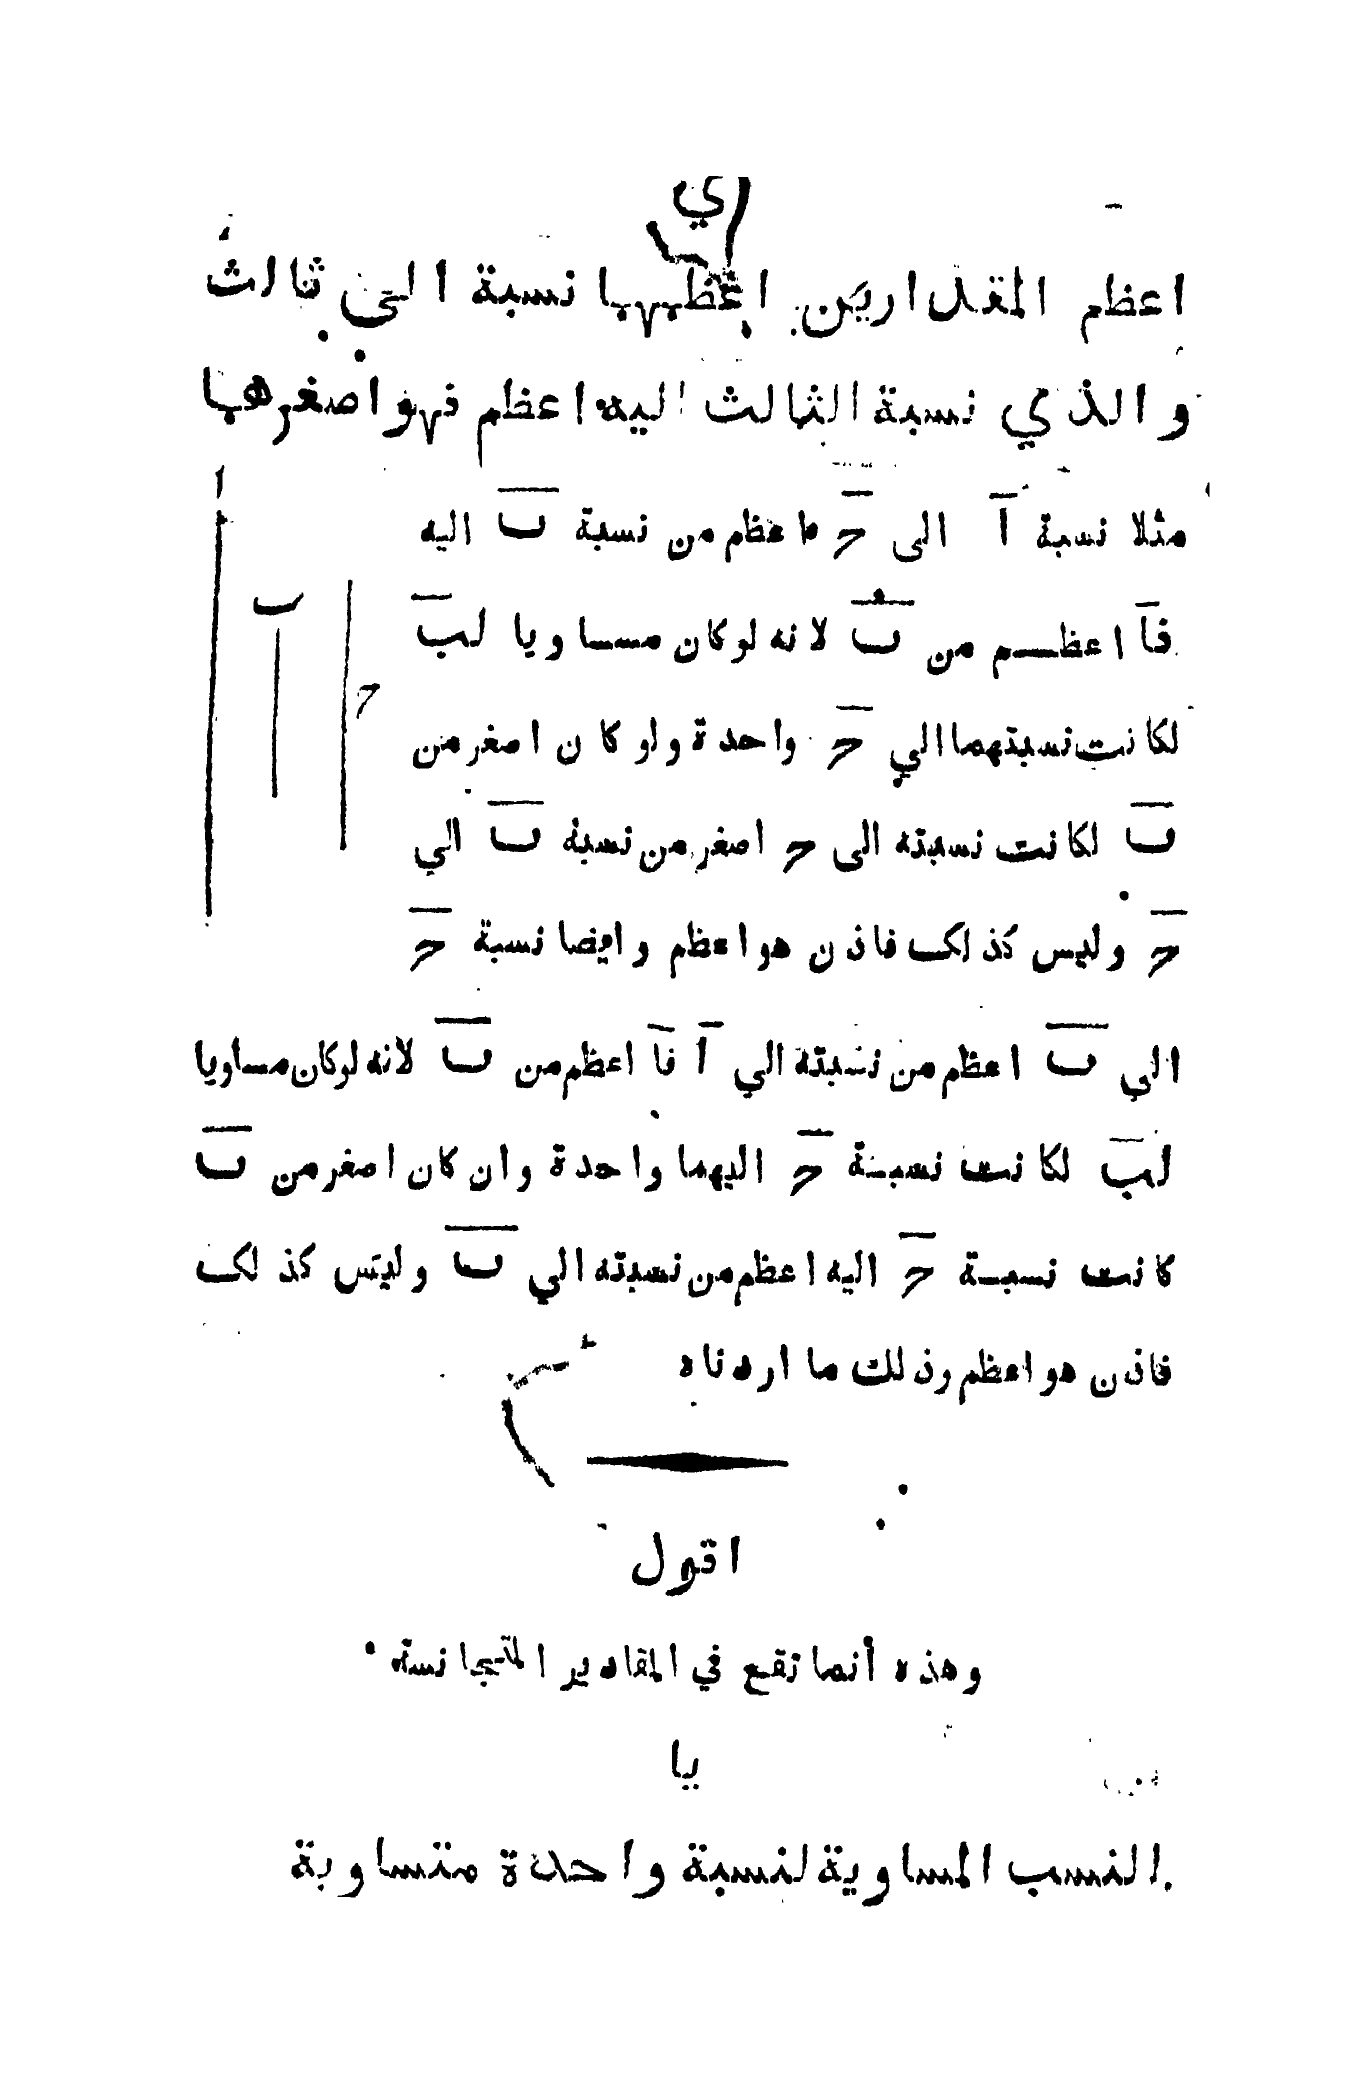 ي
اعظم المقدارين اعظمهما نسبة الي ثالث
والذي نسبة الثالث اليه اعظم فهو اصغرهما
مثلا نسبة آ الى حَ اعظم من نسبة بَ اليه
فآ اعظم من بَ لانه لو كان مساويا لبَ
لكانت نسبتهما الي حَ واحدة ولو كان اصغر من
بَ لكانت نسبته الى ح اصغر من نسبة بَ الي
حَ وليس كذلك فاذن هو اعظم وايضا نسبة حَ
الي بَ اعظم من نسبته الي آ فآ اعظم من بَ لانه لو كان مساويا
لبَ لكانت نسبة حَ اليهما واحدة وان كان اصغر من بَ
كانت نسبة حَ اليه اعظم من نسبته الي بَ وليس كذلك
فاذن هو اعظم وذلك ما اردناه
ا
ب
ح
اقول
وهذه أنما تقع في المقادير المتجانسة
يا
النسب المساوية لنسبة واحدة متساوية